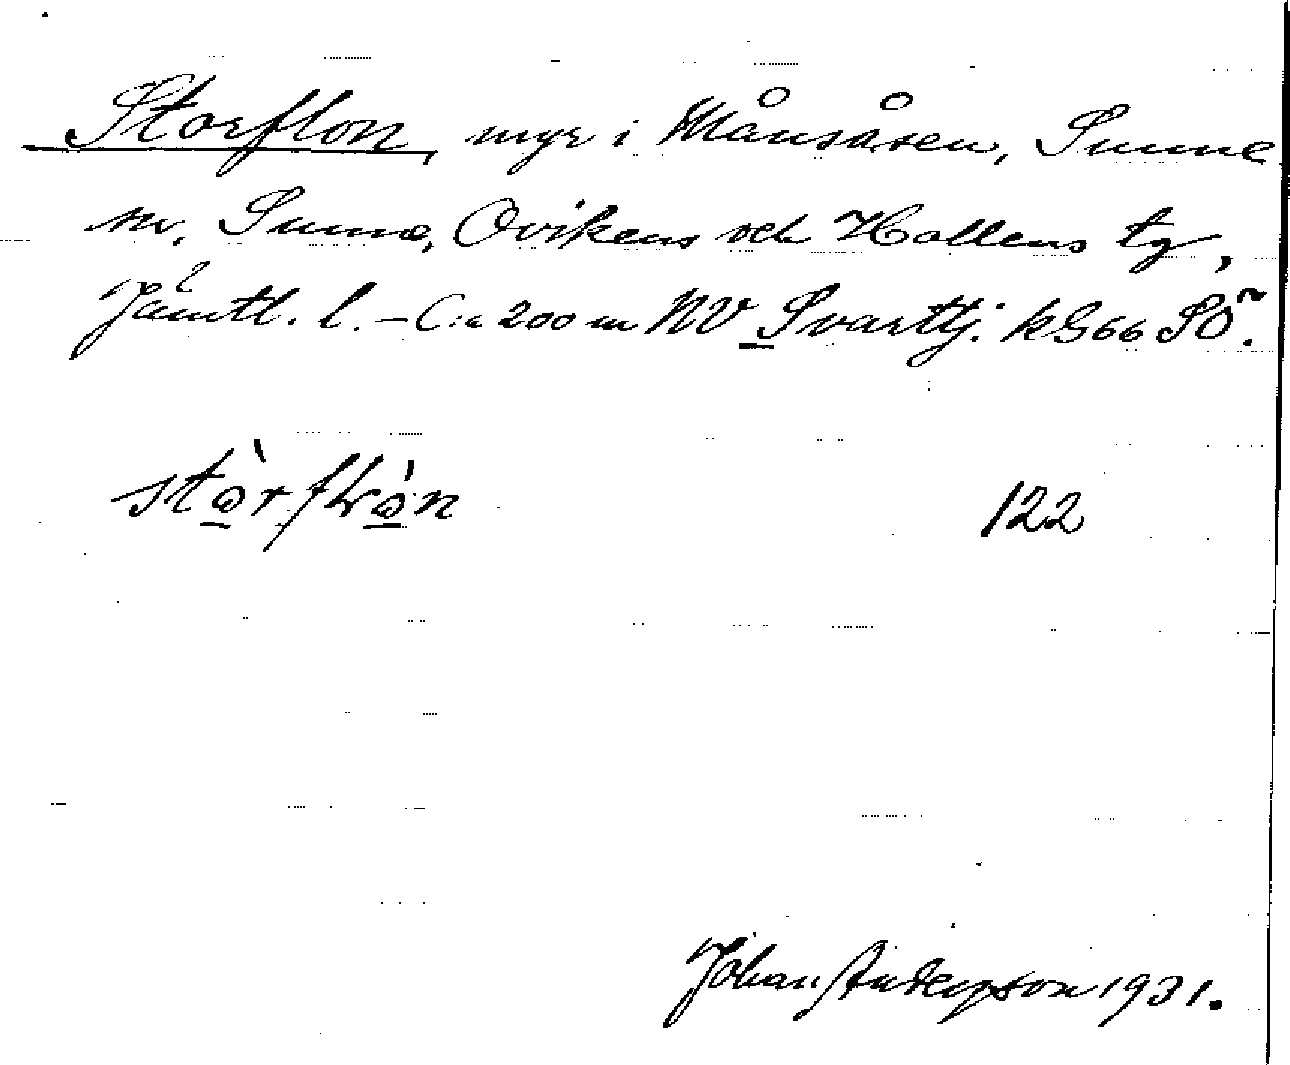 Storflon, myr i Månsåsen, Sunne
sn, Sunne, Ovikens och Hallens tg,
Jämtl. l. – C:a 200 m NV Svarttj. kG66 SÖ.
122
Johan Andersson 1931.